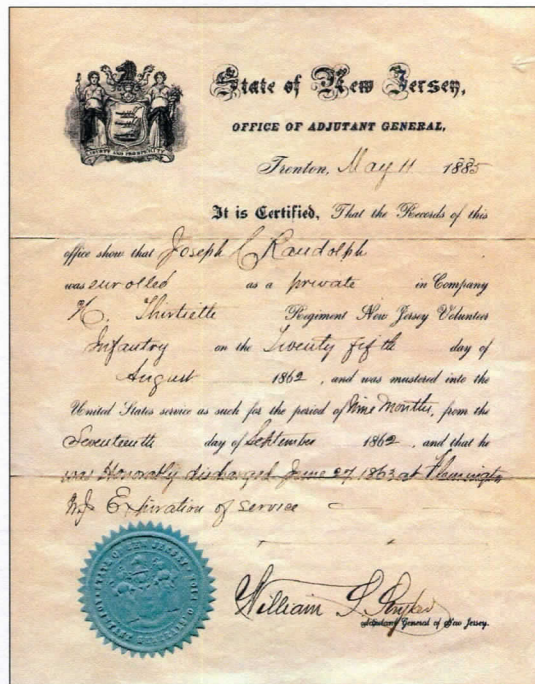 State of New Jersey,
OFFICE OF ADJUTANT GENERAL,
LIBERTY AND PROSPERITY
Trenton, May 11 1885
It is Certified, That the Records of this
office show that Joseph C Randolph
was enrolled as a private in Company
K. Thirtiette Regiment New Jersey Volunteer
Infantry on the Twenty fifth day of
August 1862, and was mustered into the
United States service as such for the period of Nine Months, from the
Seventeenth day of September 1862, and that he
was Honorably discharged June 27 1863 at Flemington
N.J. Expiration of service
William S. Stryker
Adjutant General of New Jersey.